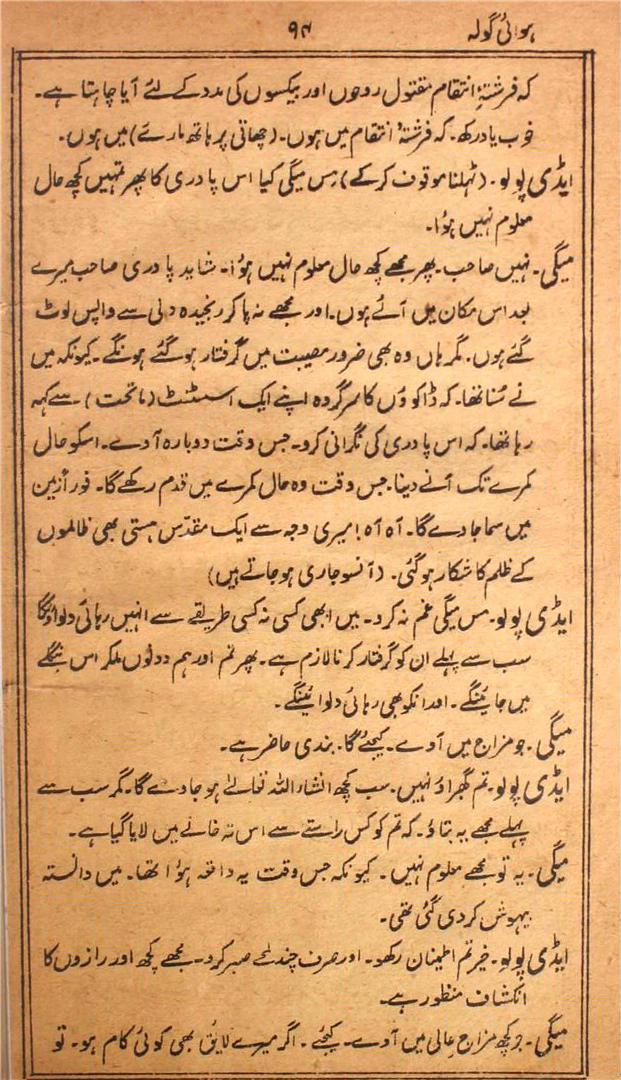 ہوائی گولہ ۹۴
کہ فرشتۂ انتقام مقتول روحوں اور بیکسوں کی مدد کے لئے آیا چاہتا ہے۔
خوب یاد رکھ۔ کہ فرشتۂ انتقام میں ہوں۔ (چھاتی پر ہاتھ مار کے) میں ہوں۔
ایڈی پولو۔ (ٹہلنا موقوف کرکے) مس میگی کیا اس پادری کا پھر تمہیں کچھ حال
معلوم نہیں ہؤا۔
میگی۔ نہیں صاحب۔ پھر مجھے کچھ حال معلوم نہیں ہؤا۔ شاید پادری صاحب میرے
بعد اس مکان میں آئے ہوں۔ اور مجھے نہ پاکر رنجیدہ دلی سے واپس لوٹ
گئے ہوں۔ مگر ہاں وہ بھی ضرور مصیبت میں گرفتار ہوگئے ہونگے۔ کیونکہ میں
نے سُنا تھا۔ کہ ڈاکوؤں کا سرگروہ اپنے ایک اسسٹنٹ (ماتحت) سے کہہ
رہا تھا۔ کہ اس پادری کی نگرانی کرو۔ جس وقت دوبارہ آوے۔ اسکو حال
کمرے تک آنے دینا۔ جس وقت وہ حال کمرے میں قدم رکھے گا۔ فوراً زمین
میں سما جاوے گا۔ آہ آہ! میری وجہ سے ایک مقدّس ہستی بھی ظالموں
کے ظلم کا شکار ہوگئی۔ (آنسو جاری ہو جاتے ہیں)
ایڈی پولو۔ مس میگی غم نہ کرو۔ میں ابھی کسی نہ کسی طریقے سے انہیں رہائی دلواؤنگا
سب سے پہلے ان کو گرفتار کرنا لازم ہے۔ پھر تم اور ہم دونوں ملکر اس بنگلے
میں جائینگے۔ اور انکو بھی رہائی دلوائینگے۔
میگی۔ جو مزاج میں آوے۔ کیجئے گا۔ بندی حاضر ہے۔
ایڈی پولو۔ تم گھبراؤ نہیں۔ سب کچھ انشاء اللہ تعالےٰ ہو جاوے گا۔ مگر سب سے
پہلے مجھے یہ بتاؤ۔ کہ تم کو کس راستے سے اس تہ خانے میں لایا گیا ہے۔
میگی۔ یہ تو مجھے معلوم نہیں۔ کیونکہ جس وقت یہ واقعہ ہؤا تھا۔ میں دانستہ
بیہوش کردی گئی تھی۔
ایڈی پولو۔ خیر تم اطمینان رکھو۔ اور صرف چند لمحے صبر کرو۔ مجھے کچھ اور رازوں کا
انکشاف منظور ہے۔
میگی۔ جو کچھ مزاج عالی میں آوے۔ کیجئے۔ اگر میرے لایق بھی کوئی کام ہو۔ تو